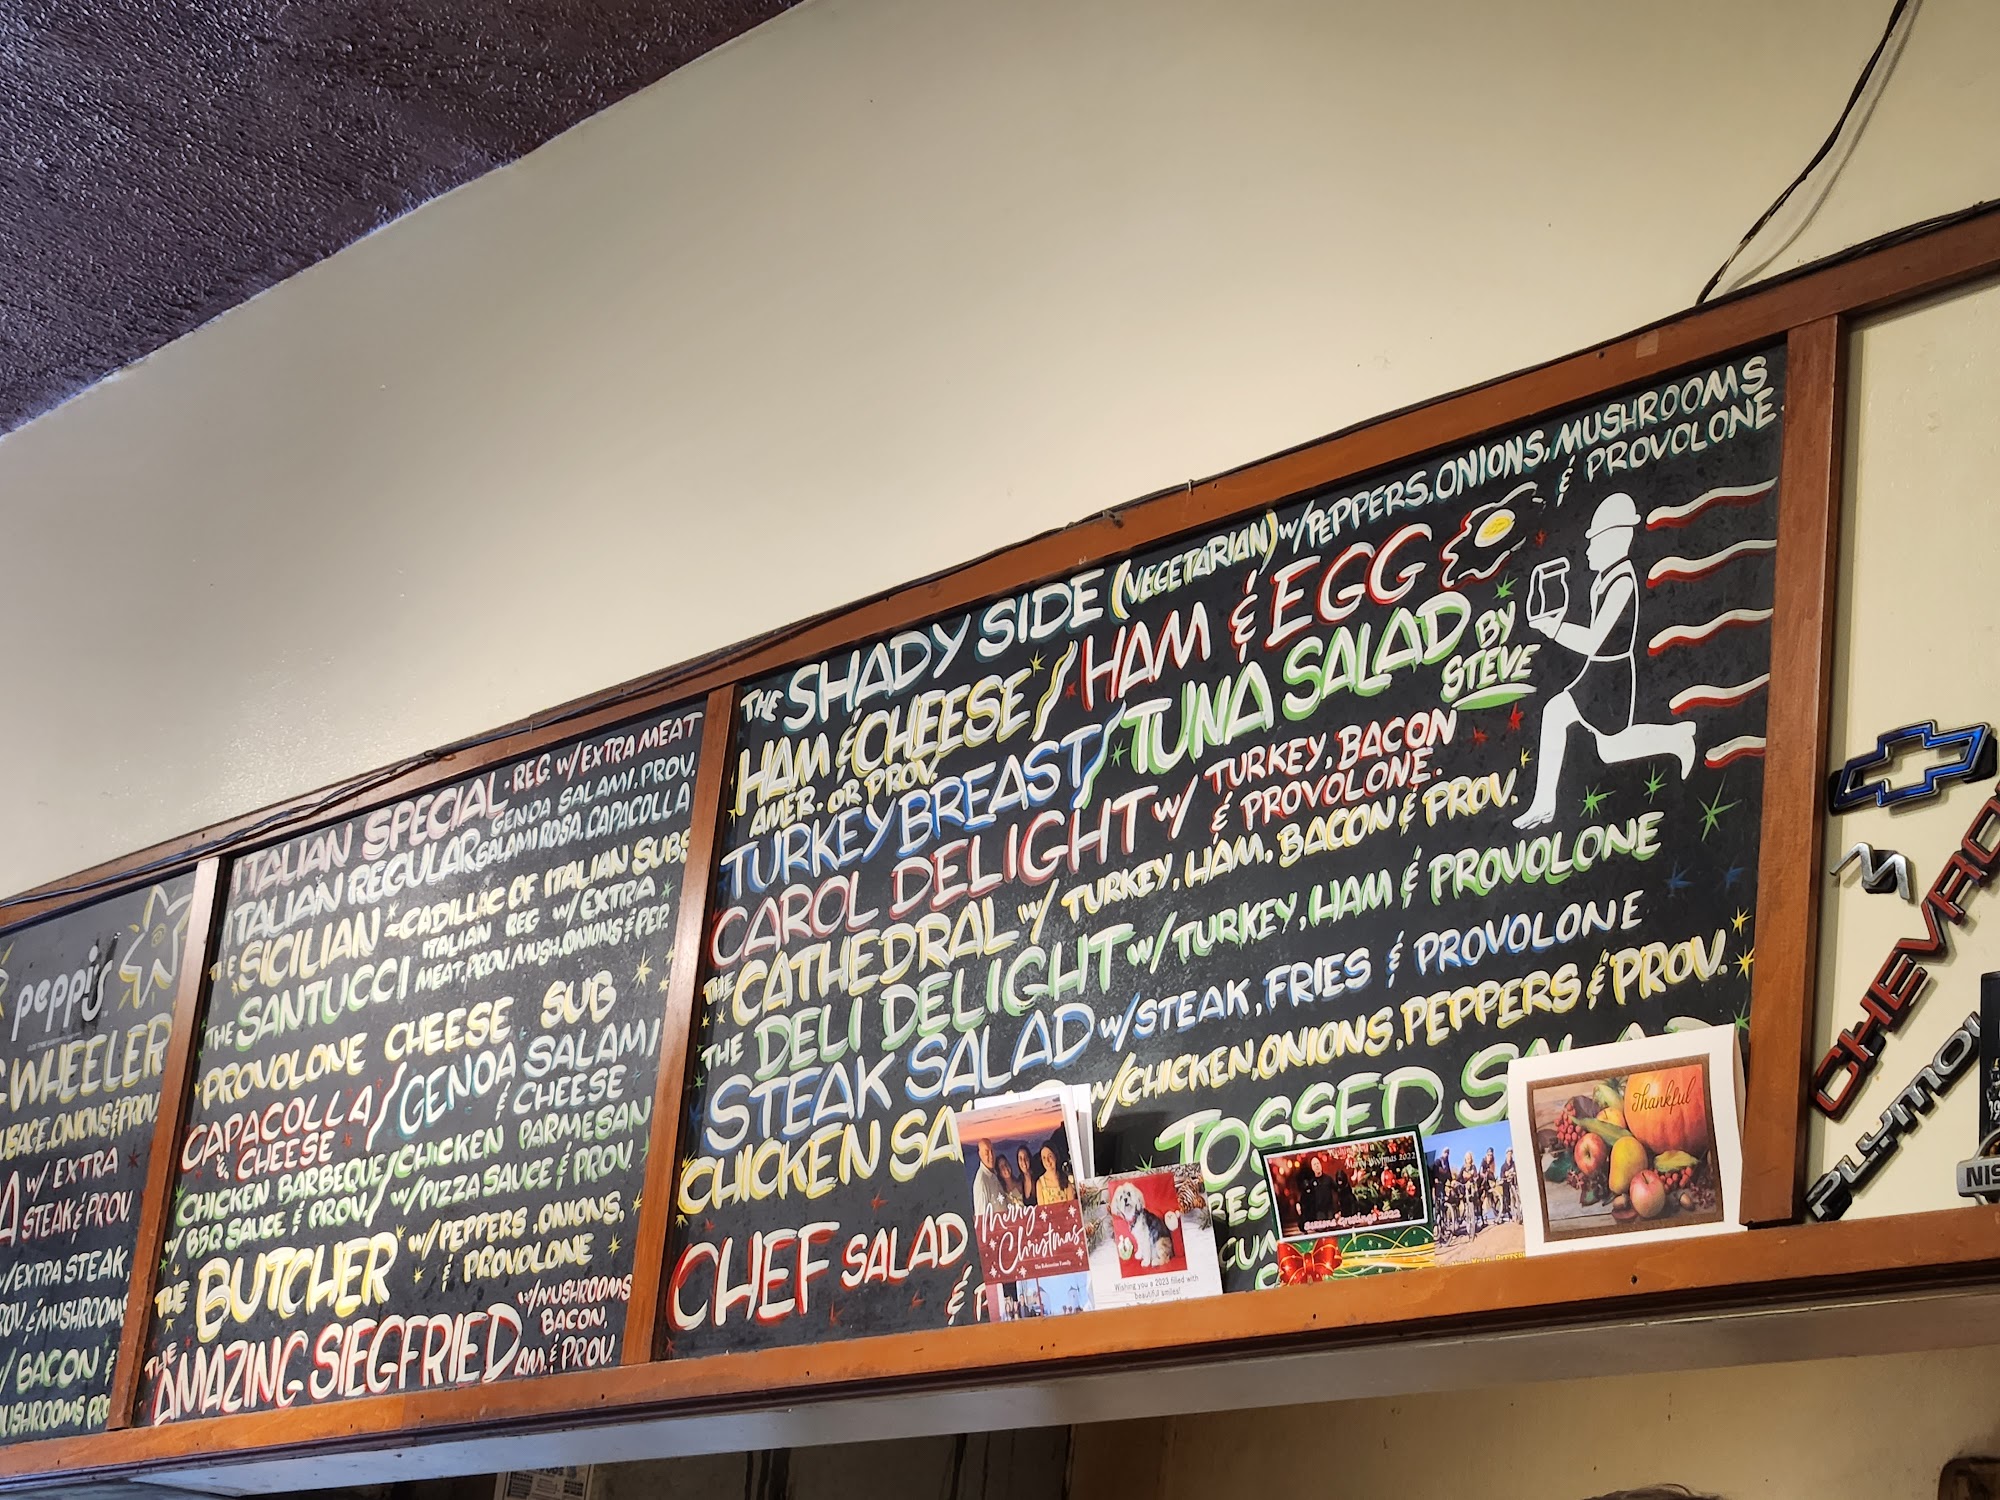 peppi's
WHEELER
ONIONS & PROV.
A W/ EXTRA
STEAK & PROV.
W/ EXTRA STEAK,
& MUSHROOMS
W/ BACON &
MUSHROOMS PRO
ITALIAN SPECIAL - REG. W/ EXTRA MEAT
ITALIAN REGULAR GENOA SALAMI, PROV,
SALAMI ROSA, CAPACOLLA
THE SICILIAN ~ CADILLAC OF ITALIAN SUBS
THE SANTUCCI ITALIAN REG W/ EXTRA
MEAT, PROV, MUSH, ONIONS & PEP.
PROVOLONE CHEESE SUB
CAPACOLLA & CHEESE / GENOA SALAMI & CHEESE
CHICKEN BARBEQUE W/ BBQ SAUCE & PROV / CHICKEN PARMESAN W/ PIZZA SAUCE & PROV.
THE BUTCHER W/ PEPPERS, ONIONS,
& PROVOLONE
THE AMAZING SIEGFRIED W/ MUSHROOMS
BACON,
AM. & PROV.
THE SHADY SIDE (VEGETARIAN) W/ PEPPERS, ONIONS, MUSHROOMS
& PROVOLONE.
HAM & CHEESE / HAM & EGG
AMER. OR PROV.
TURKEY BREAST / TUNA SALAD BY
STEVE
CAROL DELIGHT W/ TURKEY, BACON
& PROVOLONE.
THE CATHEDRAL W/ TURKEY, HAM, BACON & PROV.
THE DELI DELIGHT W/ TURKEY, HAM & PROVOLONE
STEAK SALAD W/ STEAK, FRIES & PROVOLONE
CHICKEN SA W/ CHICKEN, ONIONS, PEPPERS & PROV.
TOSSED SALAD
CHEF SALAD
&
Merry
Christmas
Wishing you a 2023 filled with
beautiful smiles!
Merry Woofmas 2022
Seasons Greetings 2022
Thankful
CHEVRO
PLYMO
NIS